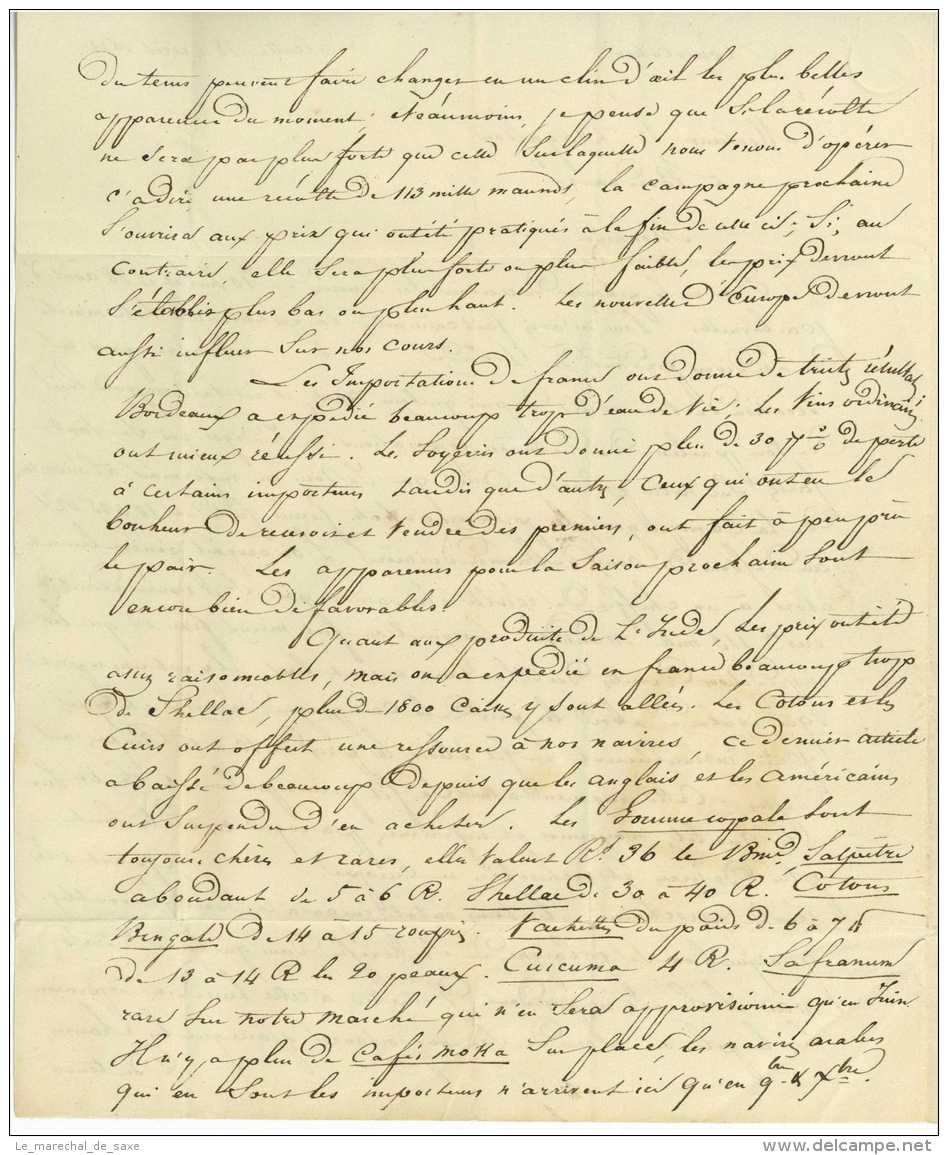 du tems peuvent faire changer en un clin d'œil les plus belles
apparences du moment; Néaumoins, je pense que Si la récolte
ne Sera pas plus forte que celle Sur laquelle nous Venons d'opérer
c'adire une récolte de 113 mille maunds, la campagne prochaine
S'ouvrira aux prix qui ont été pratiqués à la fin de celle ci; Si, au
Contraire, elle Sera plus forte ou plus faible, les prix devront
S'établir plus bas ou plus haut. Les nouvelles d'Europe devront
aussi influer Sur nos cours.
Les Importations de france ont donné de tristes résultats
Bordeaux a expédié beaucoup trop d'eau de Vie; Les Vins ordinaires
ont mieux réussi. Les Soyeries ont donné plus de 30 p % de perte
à certains importeurs tandis que d'autres, Ceux qui ont eu le
bonheur de recevoir et Vendre des premiers, ont fait à peu près
le pair. Les apparences pour la Saison prochaine Sont
encore bien défavorables.
Quant aux produits de L'Inde, Les prix ont été
assez raisonnables, mais on a expédié en france beaucoup trop
de Shellac, plus de 1800 Caisses y Sont allées. Les Cotons et les
Cuirs ont offert une ressource à nos navires, ce dernier article
a baissé de beaucoup depuis que les anglais et les américains
ont Suspendu d'en acheter. Les Gomme copale Sont
toujours chères et rares, elles Valent Rs 36 le Bmd, Salpêtre
abondant de 5 à 6 R. Shellac de 30 à 40 R. Cotons
Bengale de 14 à 15 roupies. Vachettes du poids de 6 à 7 lb
de 13 à 14 R les 20 peaux. Curcuma 4 R. Safranum
rare Sur notre marché qui n'en Sera approvisionné qu'en Juin
Il n'y a plus de Cafés moka Sur place, les navires arabes
qui en Sont les importeurs n'arrivent ici qu'en 9bre & Xbre.
Le_marechal_de_saxe
www.delcampe.net